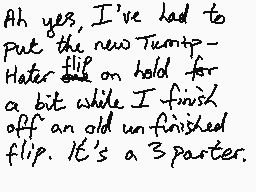 Ah yes, I've had to
put the new Turnip-
Hater flip on hold for
a bit while I finish
off an old unfinished
flip. It's a 3 parter.